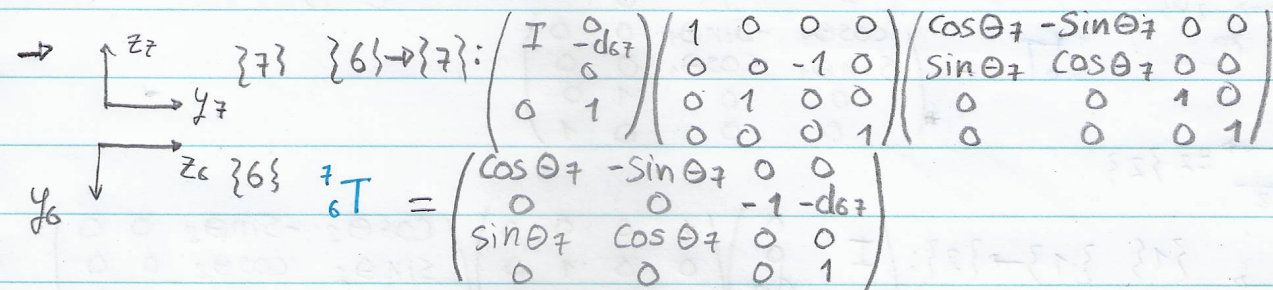 → z7 {7} {6}→{7}: ( I 0 -d67 0 0 1 ) ( 1 0 0 0 0 0 -1 0 0 1 0 0 0 0 0 1 ) ( cosθ7 -sinθ7 0 0 sinθ7 cosθ7 0 0 0 0 1 0 0 0 0 1 )
y7
z6 {6}
y6
⁷₆T = ( cosθ7 -sinθ7 0 0
0 0 -1 -d67
sinθ7 cosθ7 0 0
0 0 0 1 )